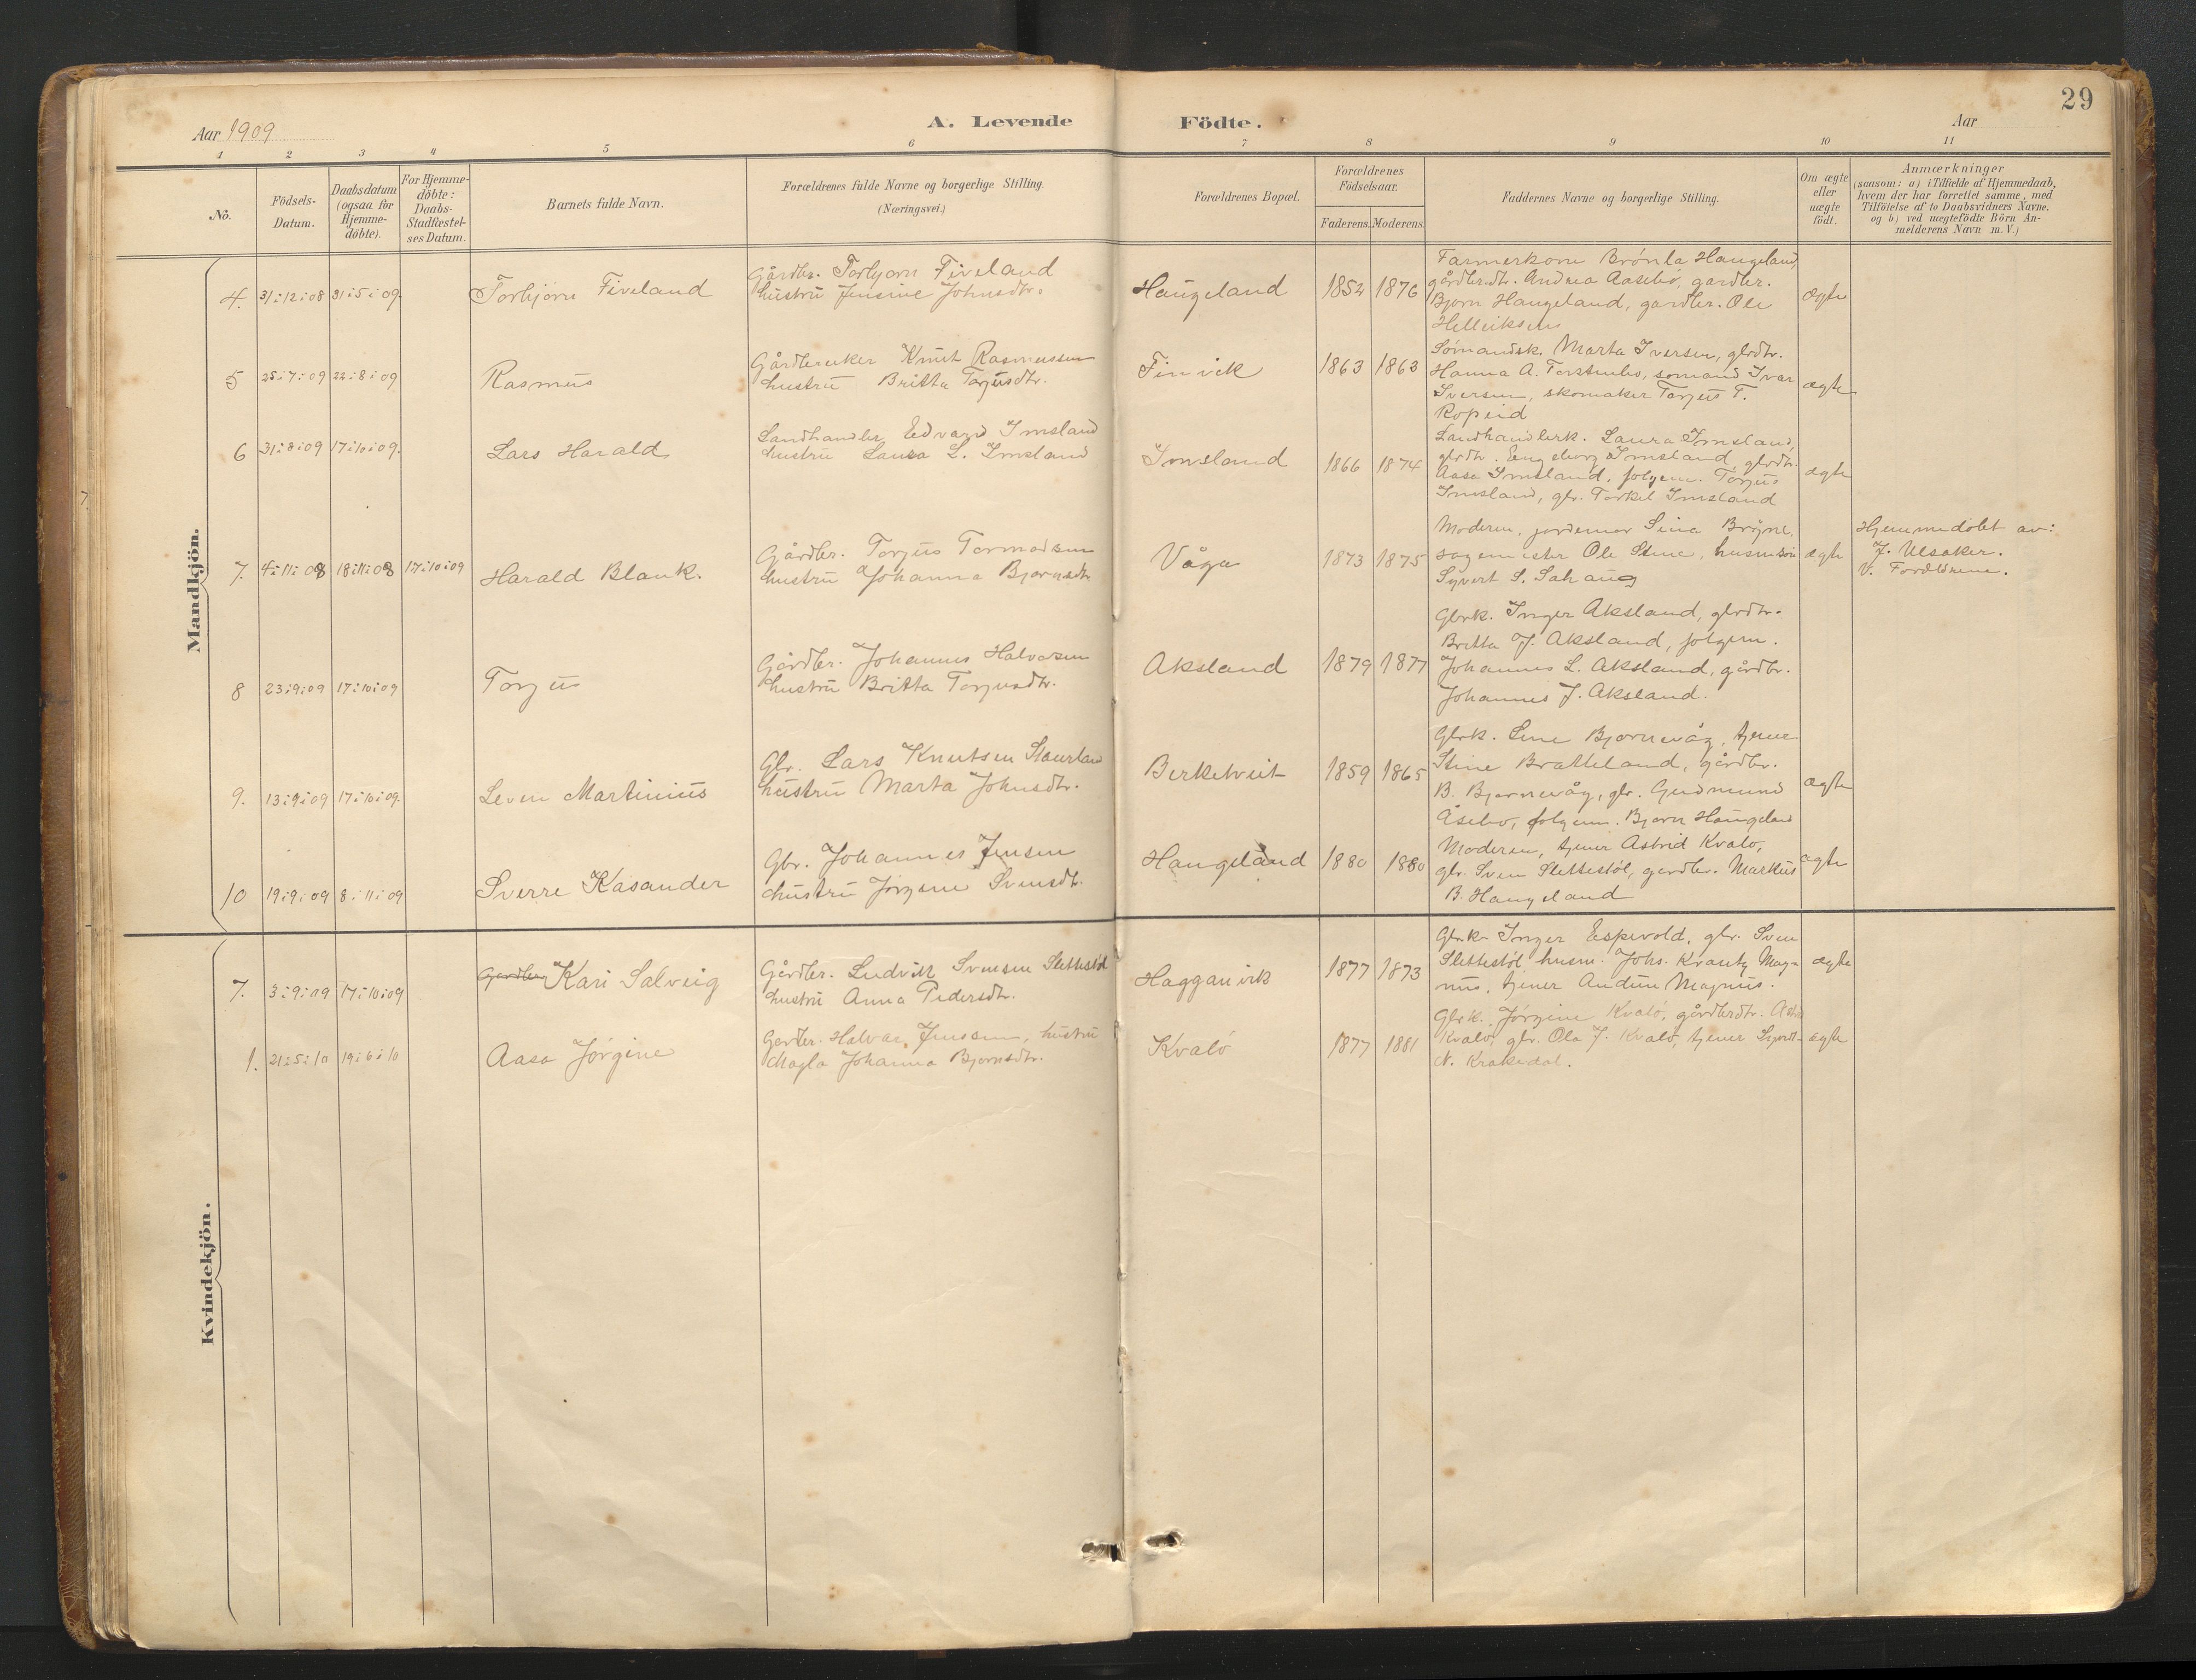 29
Aar 1909
A. Levende
Födte.
Aar
1 2 3 4 5 6 7 8 9 10 11
No.
Födsels-
Datum.
Daabsdatum
(ogsaa for
Hjemme-
döbte).
For Hjemme-
döbte:
Daabs-
Stadfæstel-
ses Datum.
Barnets fulde Navn.
Forældrenes fulde Navne og borgerlige Stilling.
(Næringsvei.)
Forældrenes Bopæl.
Forældrenes
Födselsaar.
Faderens. Moderens.
Faddernes Navne og borgerlige Stilling.
Om ægte
eller
uægte
födt.
Anmærkninger
(saasom: a) i Tilfælde af Hjemmedaab,
hvem der har forrettet samme, med
Tilföielse af to Daabsvidners Navne.
og b) ved uægtefödte Börn An-
melderens Navn m. V.)
Mandkjön.
4. 31:12:08 31:5:09. Torbjörn Fiveland
Gårdbr. Torbjorn Fiveland
hustru Jensine Johnsdtr.
Haugeland 1852 1876
Farmerkone Brönla Haugeland,
gårdbr.dtr. Andrea Aasebö, gardbr.
Bjorn Haugeland, gardbr. Ole
Helleiksen
Ægte
5 25:7:09 22:8:09 Rasmus
Gårdbruker Knut Rasmussen
hustru Britta Torjusdtr.
Finvik 1863 1863
Sömandsk. Marta Iversen, gbrdtr.
Hanna A. somand Ivar
Iversen, skomaker Torjus T.
Ropeid
ægte
6 31:8:09 17:10:09. Lars Harald
Landhandler Edvard Imsland
hustru Laura L. Imsland
Imsland 1866 1874
Landhandlerk. Laura Imsland,
gbrdtr. Engeborg Imsland, gbrdtr.
Aasa Imsland, folgem. Torjus
Imsland, gbr. Torkel Imsland
ægte
7. 4:11:08 18:11:08 17:10:09 Harald Blank.
Gårdbr. Torjus Tormodsen
hustru Johanna Bjornsdtr.
Våga 1873 1875
Moderen, jordemor Sina Bryne,
sagemester Ole Stene, husmsön
Syvert S. Sahaug
ægte
Hjemmedöbt av:
J. Ulsaker.
V.
8 23:9:09 17:10:09 Torjus
Gårdbr. Johannes Halvorsen
hustru Britta Torjusdtr.
Aksland 1879 1877
Gbrk. Inger Aksland, gbrdtr.
Britta J. Aksland, folgem.
Johannes L. Aksland, gårdbr.
Johannes J. Aksland.
9. 13:9:09 17:10:09. Leven Martinius
Gbr. Lars Knutsen
hustru Marta Johnsdtr.
Berketveit 1859 1865
Gbrk. Lene Bjornevåg, tjener
Stine Bratteland, gårdbr.
B. Bjornevåg, gbr. Gudmund
Åsebo, folgem. Bjorn Haugeland
ægte
10 19:9:09 8:11:09 Sverre Kasander
Gbr. Johannes Jensen
hustru Jorgine Svensdtr.
Haugeland 1880 1880
Moderen, tjener Astrid Kvalo,
gbr. Sven Slettestöl, gardbr. Markus
B. Haugeland
ægte
Kvindekjön.
7. 3:9:09 17:10:09 Kari Salveig
Gårdbr. Ludvik Svensen Slettestöl
hustru Anna Pedersdtr.
Hagganvik 1877 1873
Gbrk. Inger Eskevold, gbr. Sven
Slettestöl, husm. Johs. Krantz Mag-
nus, tjener Audun Magnus.
ægte
1. 21:5:10 19:6:10 Aasa Jörgine
Gardbr. Halvar Jenssen, hustru
Magla Johanna Bjornsdtr.
Kvalö 1877 1881
Gbrk. Jörgine Kvalö, gårdbrdtr.
Kvalö, gbr. Ola J. Kvalö, tjener
N. Krakedal.
ægte